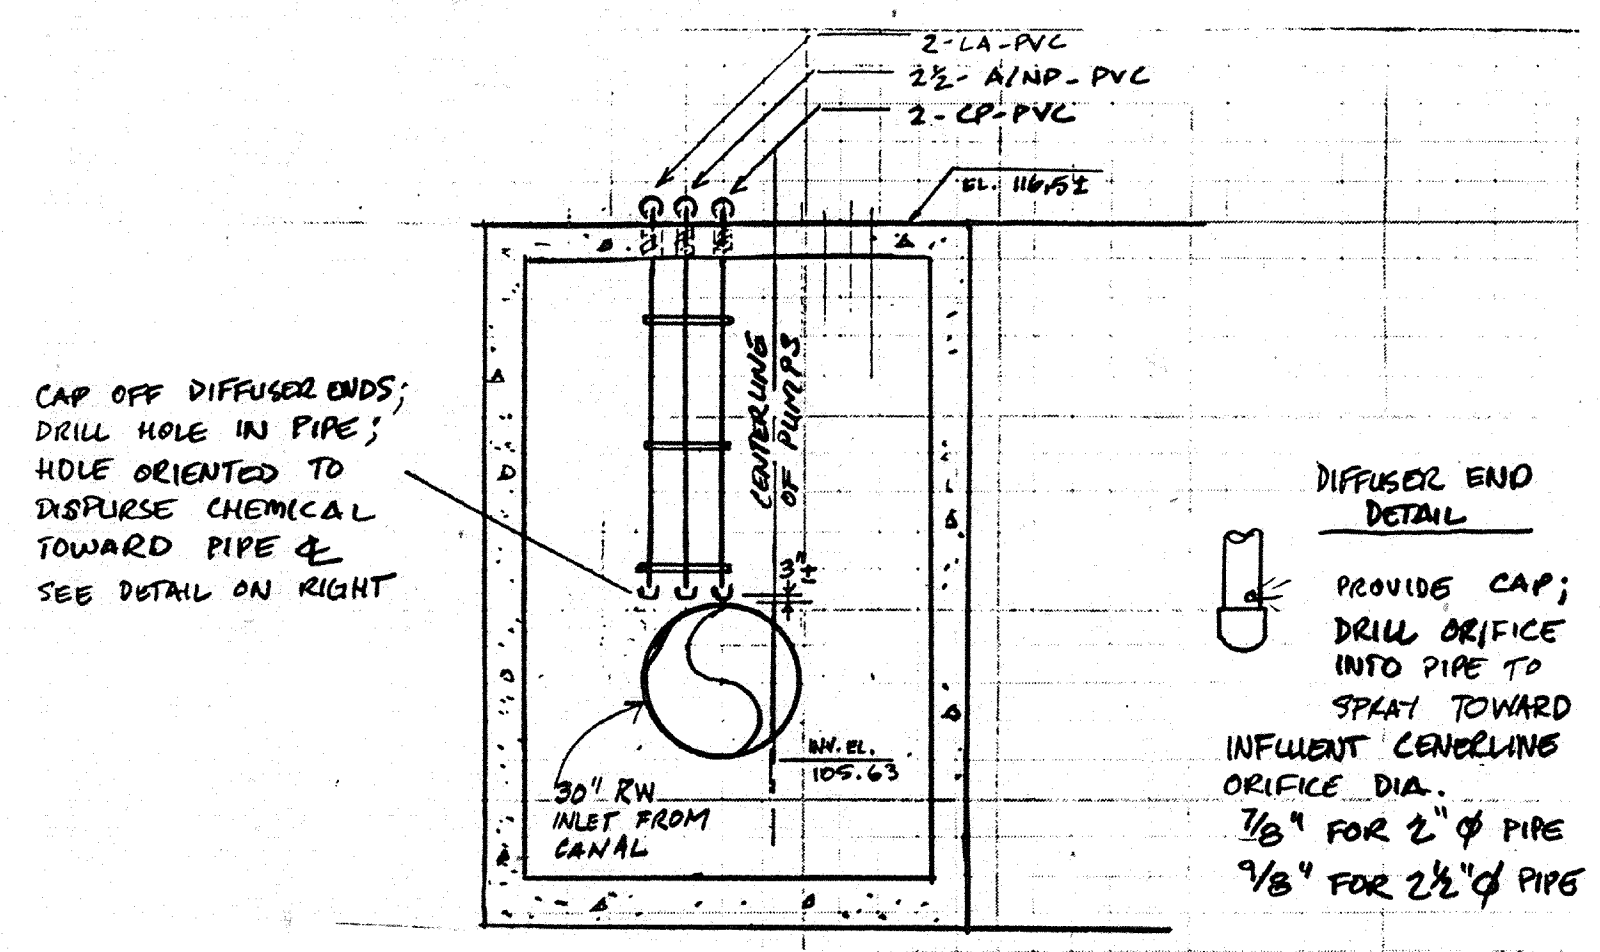 2-LA-PVC
2½- A/NP-PVC
2-CP-PVC
EL. 116.5±
CENTERLINE
OF PUMPS
CAP OFF DIFFUSER ENDS;
DRILL HOLE IN PIPE;
HOLE ORIENTED TO
DISPURSE CHEMICAL
TOWARD PIPE ℄
SEE DETAIL ON RIGHT
3"±
INV. EL.
105.63
30" RW
INLET FROM
CANAL
DIFFUSER END
DETAIL
PROVIDE CAP;
DRILL ORIFICE
INTO PIPE TO
SPRAY TOWARD
INFLUENT CENERLINE
ORIFICE DIA.
7/8" FOR 2"Ø PIPE
9/8" FOR 2½"Ø PIPE